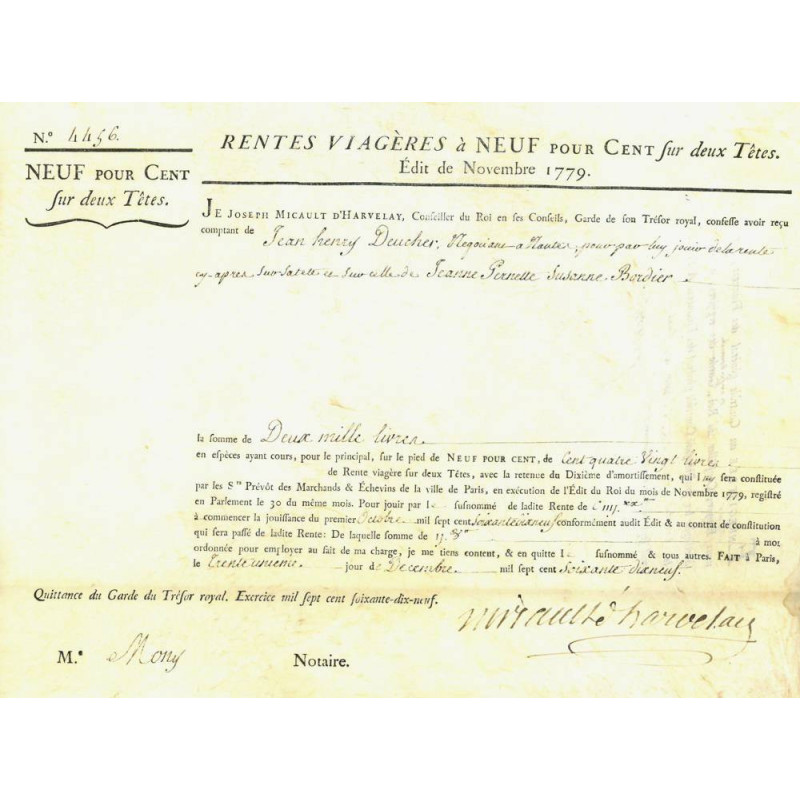 N.º 4456.
NEUF POUR CENT
sur deux Têtes.
RENTES VIAGÈRES à NEUF POUR CENT sur deux Têtes.
Édit de Novembre 1779.
JE JOSEPH MICAULT D'HARVELAY, Conseiller du Roi en ses Conseils, Garde de son Trésor royal, confesse avoir reçu
comptant de Jean henry Deucher, Negociant a Nantes, pour par luy jouir de la rente
cy après sur sa tete et sur celle de Jeanne Pernette Susanne Bordier
la somme de Deux mille livres
en espèces ayant cours, pour le principal, sur le pied de NEUF POUR CENT, de Cent quatre Vingt livres
de Rente viagère sur deux Têtes, avec la retenue du Dixième d'amortissement, qui luy sera constituée
par les Srs Prévôt des Marchands & Échevins de la ville de Paris, en exécution de l'Édit du Roi du mois de Novembre 1779, registré
en Parlement le 30 du même mois. Pour jouir par le susnommé de ladite Rente de
à commencer la jouissance du premier Octobre mil sept cent soixante dixneuf conformément audit Édit & au contrat de constitution
qui sera passé de ladite Rente: De laquelle somme de à moi
ordonnée pour employer au fait de ma charge, je me tiens content, & en quitte le susnommé & tous autres. FAIT à Paris,
le trente unieme jour de Decembre mil sept cent Soixante dixneuf.
Quittance du Garde du Trésor royal. Exercice mil sept cent soixante-dix-neuf.
Micault d'harvelay
M.e Mony Notaire.